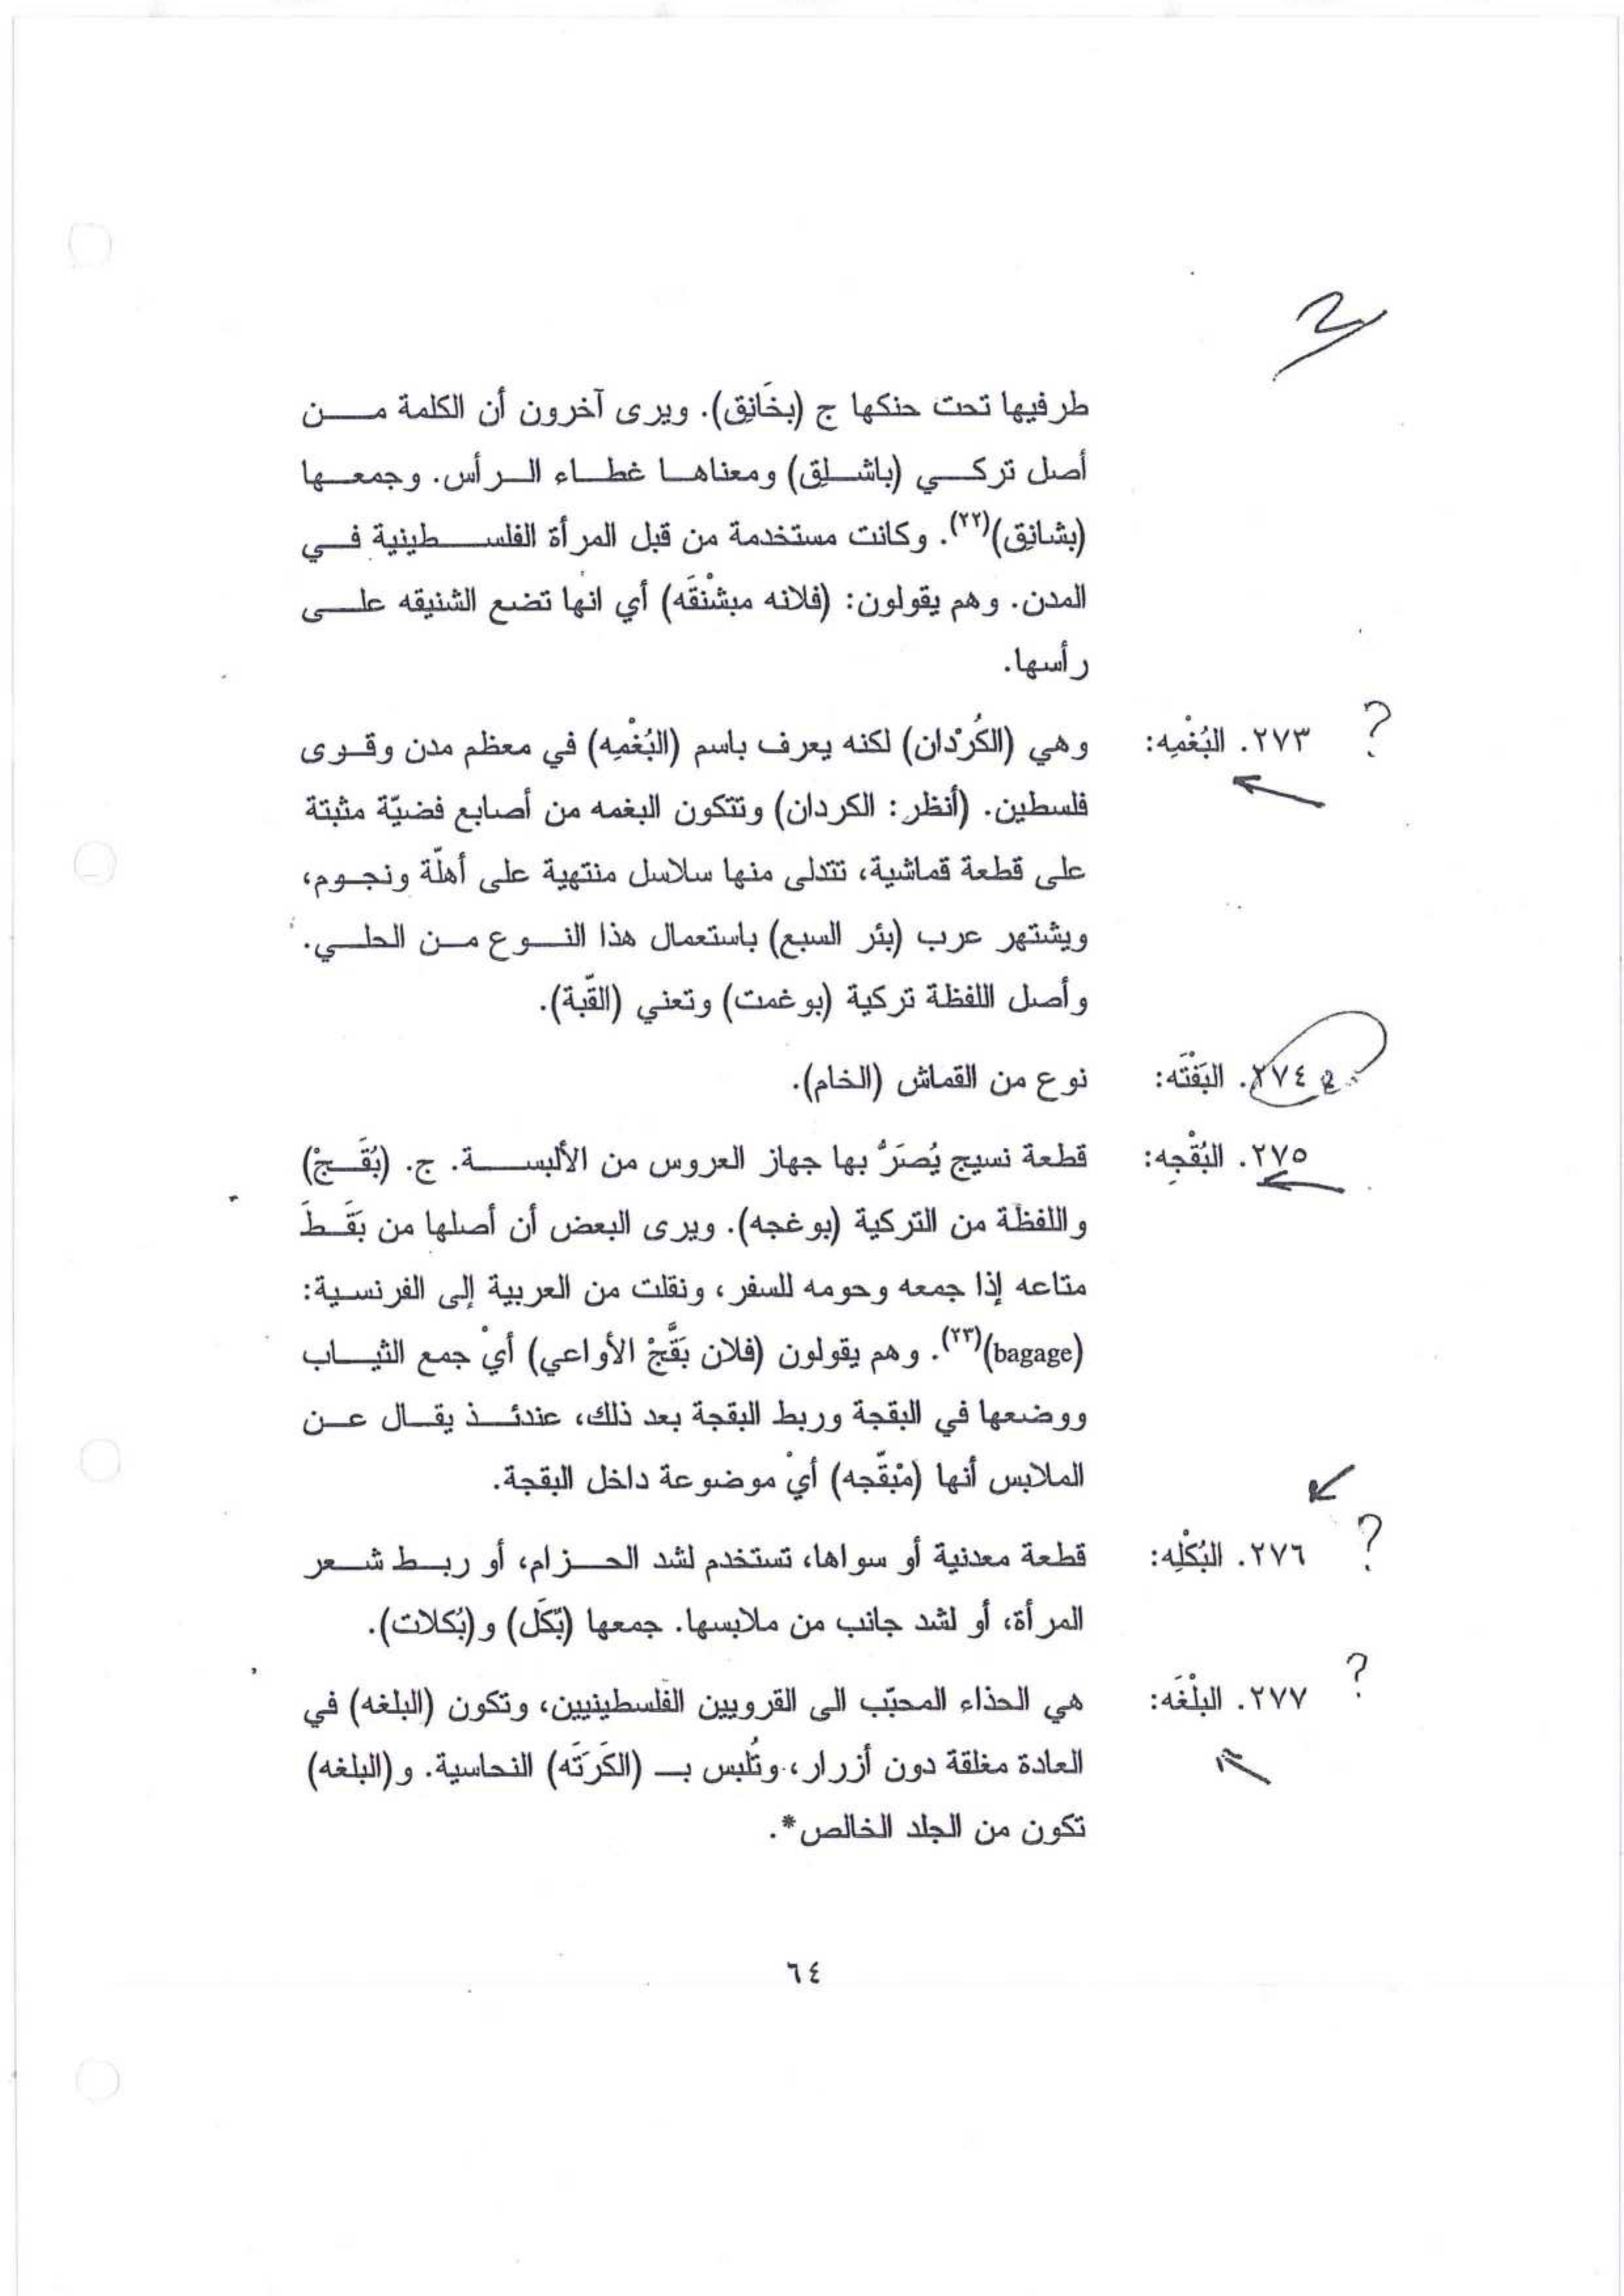 طرفيها تحت حنكها ج (بخَانِق). ويرى آخرون أن الكلمة من
أصل تركي (باشلِق) ومعناها غطاء الرأس. وجمعها
(بشانِق)(٢٢). وكانت مستخدمة من قبل المرأة الفلسطينية في
المدن. وهم يقولون: (فلانه مبشْنقَه) أي انها تضع الشنيقه على
رأسها.
؟ ٢٧٣. البُغْمِه: وهي (الكُرْدان) لكنه يعرف باسم (البُغْمِه) في معظم مدن وقرى
فلسطين. (أنظر: الكردان) وتتكون البغمه من أصابع فضيّة مثبتة
على قطعة قماشية، تتدلى منها سلاسل منتهية على أهلّة ونجوم،
ويشتهر عرب (بئر السبع) باستعمال هذا النوع من الحلي.
وأصل اللفظة تركية (بوغمت) وتعني (القبّة).
٢٧٤. البَفْتَه: نوع من القماش (الخام).
٢٧٥. البُقْجِه: قطعة نسيج يُصَرُّ بها جهاز العروس من الألبسة. ج. (بُقَجْ)
واللفظة من التركية (بوغجه). ويرى البعض أن أصلها من بَقَطَ
متاعه إذا جمعه وحومه للسفر، ونقلت من العربية إلى الفرنسية:
(bagage)(٢٣). وهم يقولون (فلان بَقَّجْ الأواعي) أيْ جمع الثياب
ووضعها في البقجة وربط البقجة بعد ذلك، عندئذ يقال عن
الملابس أنها (مْبَقّجه) أيْ موضوعة داخل البقجة.
؟ ٢٧٦. البُكْلِه: قطعة معدنية أو سواها، تستخدم لشد الحزام، أو ربط شعر
المرأة، أو لشد جانب من ملابسها. جمعها (بّكَل) و(بُكلات).
؟ ٢٧٧. البلْغَه: هي الحذاء المحبّب الى القرويين الفلسطينيين، وتكون (البلغه) في
العادة مغلقة دون أزرار، وتُلبس بـ (الكَرَتَه) النحاسية. و(البلغه)
تكون من الجلد الخالص*.
٦٤